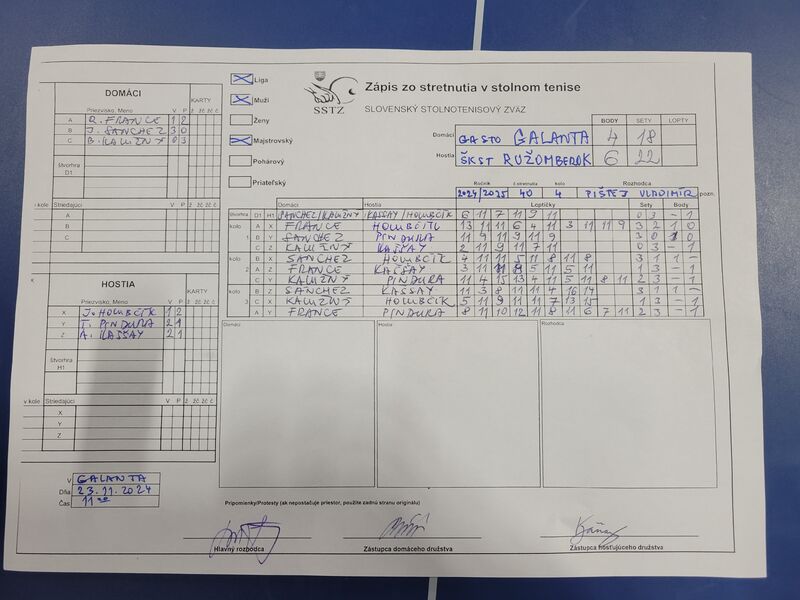 Zápis zo stretnutia v stolnom tenise
SLOVENSKÝ STOLNOTENISOVÝ ZVÄZ
SSTZ
Liga
Muži
Ženy
Majstrovský
Pohárový
Priateľský
BODY SETY LOPTY
Domáci GASTO GALANTA 4 18
Hostia ŠKST RUŽOMBEROK 6 22
Ročník č.stretnutia kolo Rozhodca
2024/2025 40 4 PIŠTEJ VLADIMÍR pozn.
DOMÁCI
KARTY
Priezvisko, Meno V P ž žč žč č
A R. FRANCE 1 2
B J. SANCHEZ 3 0
C B. KALUZNY 0 3
štvorhra
D1
v kole Striedajúci
A
B
C
HOSTIA
KARTY
Priezvisko, Meno V P ž žč žč č
X J. HOLUBČÍK 1 2
Y T. PINDURA 2 1
Z A. KAŠŠAY 2 1
štvorhra
H1
v kole Striedajúci V P ž žč žč č
X
Y
Z
V GALANTA
Dňa 23.11.2024
Čas 11 00
Domáci Hostia Loptičky Sety Body
štvorhra D1 H1 SANCHEZ/KALUZNY KAŠŠAY/HOLUBČÍK 6 11 7 11 9 11 0 3 – 1
kolo A X FRANCE HOLUBČÍK 13 11 11 6 4 11 3 11 11 9 3 2 1 0
1 B Y SANCHEZ PINDURA 11 9 11 9 11 9 3 0 1 0
C Z KALUZNY KAŠŠAY 2 11 9 11 7 11 0 3 – 1
kolo B X SANCHEZ HOLUBČÍK 4 11 11 5 11 8 11 8 3 1 1 –
2 A Z FRANCE KAŠŠAY 3 11 11 8 5 11 5 11 1 3 – 1
C Y KALUZNY PINDURA 11 4 15 13 4 11 5 11 8 11 2 3 – 1
kolo B Z SANCHEZ KAŠŠAY 11 3 8 11 11 4 16 14 3 1 1 –
3 C X KALUZNY HOLUBČÍK 5 11 9 11 11 7 13 15 1 3 – 1
A Y FRANCE PINDURA 8 11 10 12 11 8 11 6 7 11 2 3 – 1
Domáci Hostia Rozhodca
Pripomienky/Protesty (ak nepostačuje priestor, použite zadnú stranu originálu)
Hlavný rozhodca Zástupca domáceho družstva Zástupca hosťujúceho družstva